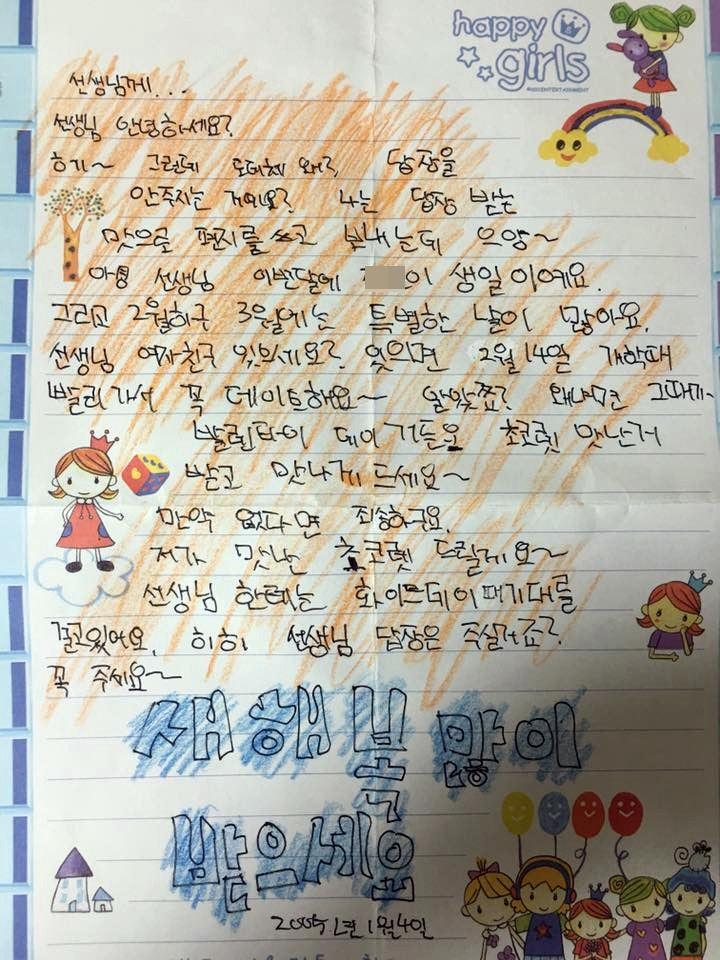 happy
girls
선생님께...
선생님 안녕하세요?
히기~ 그런데 도대체 왜?, 답장을
안주지는 거에요? 나는 답장 받는
맛으로 편지를 쓰고 보내는데 으앙~
아령 선생님 이번달에 이 생일이에요.
그리고 2월하구 3월에는 특별한 날이 많아요.
선생님 여자친구 있으세요? 있으면 2월 14일 개학때
빨리 가서 꼭 데이트해요~ 알았죠? 왜냐면 그때가~
발렌타이 데이거든요 초코렛 맛난거
받고 맛나게 드세요~
만약 없다면 죄송하구요.
저가 맛난 초코렛 드릴게요~
선생님 한테는 화이트데이때 기대를
걸고있어요. 히히 선생님 답장은 주실거죠?
꼭 주세요~
새해 복 많이
받으세요
2005년 1월 4일